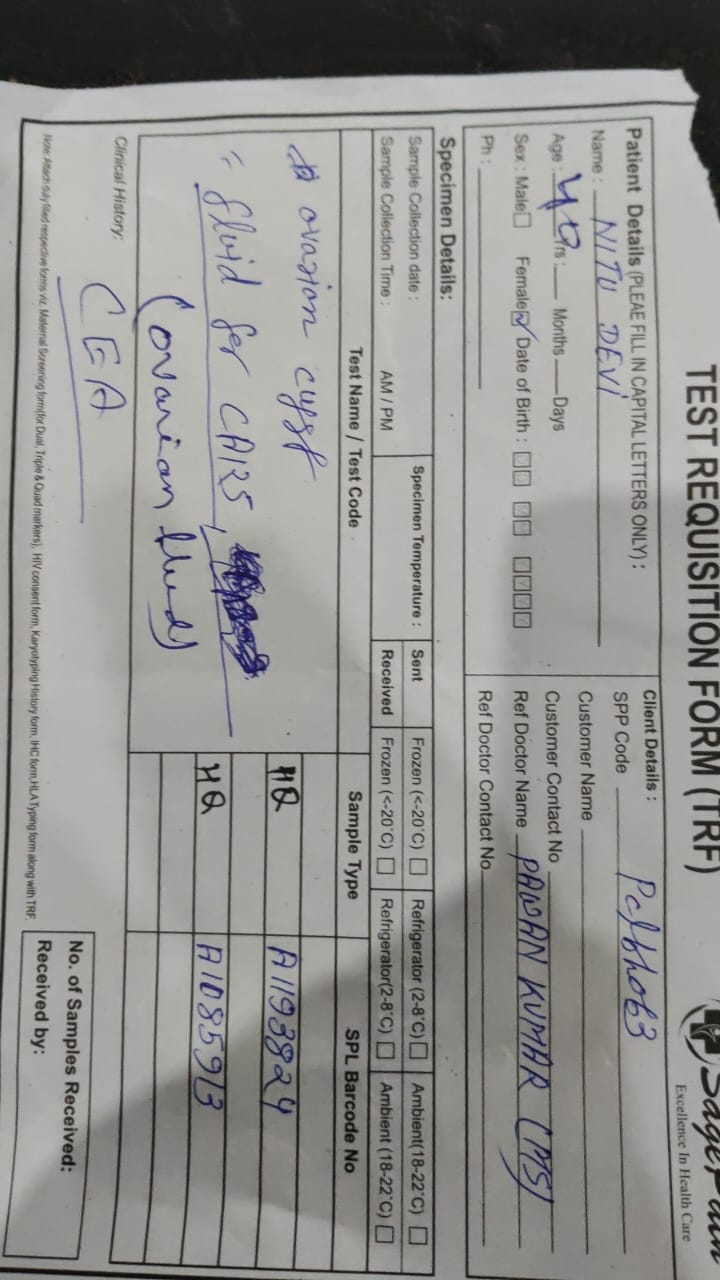 TEST REQUISITION FORM (TRF)
Excellence In Health Care
Patient Details (PLEAE FILL IN CAPITAL LETTERS ONLY) :
Name : NITU DEVI
Age : 40 Yrs : Months Days
Sex : Male Female Date of Birth :
Ph :
Client Details :
SPP Code
Customer Name
Customer Contact No
Ref Doctor Name PAWAN KUMAR (MS)
Ref Doctor Contact No
Specimen Details:
Sample Collection date : Specimen Temperature : Sent Frozen (<-20°C) Refrigerator (2-8°C) Ambient(18-22°C)
Sample Collection Time : AM / PM Received Frozen (<-20°C) Refrigerator(2-8°C) Ambient (18-22°C)
Test Name / Test Code Sample Type SPL Barcode No
ovarion cyst HQ A1193824
fluid for CA125, HQ A1085913
(ovarian fluid)
Clinical History:
CEA
No. of Samples Received:
Received by:
Note: Attach duly filled respective forms viz. Maternal Screening form(for Dual, Triple & Quad markers), HIV consent form, Karyotyping History form, IHC form,HLA Typing form along with TRF.